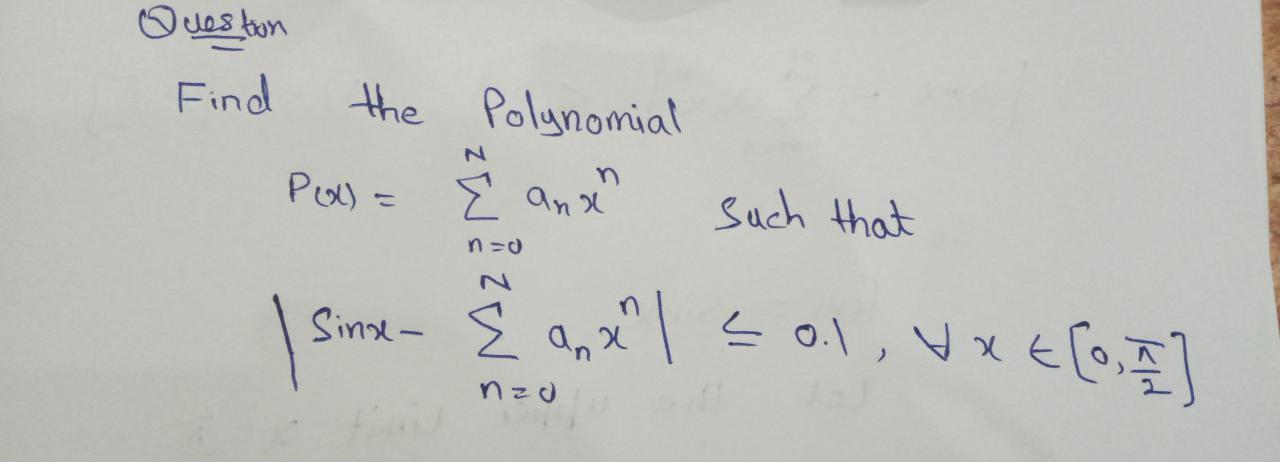 Question
Find the Polynomial
P(x) = ∑_{n=0}^{N} aₙxⁿ Such that
| Sinx - ∑_{n=0}^{N} aₙxⁿ | ≤ 0.1, ∀ x ∈ [0, π/2]